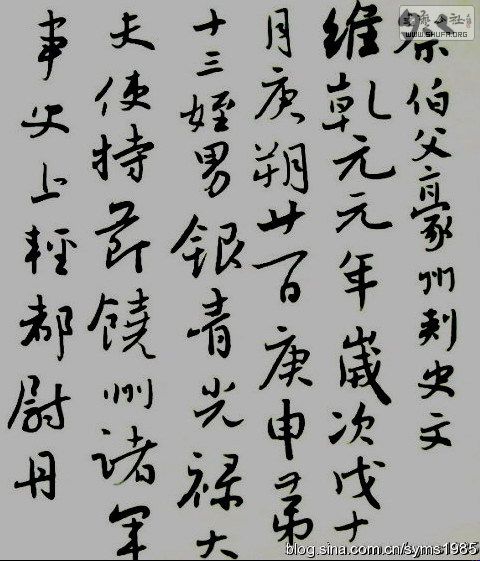 祭伯父豪州刺史文
維乾元元年歲次戊十
月庚朔廿一日庚申第
十三姪男銀青光祿大
夫使持節饒州諸軍
事史上輕都尉丹
WWW.SHUFA.ORG
blog.sina.com.cn/syms1985